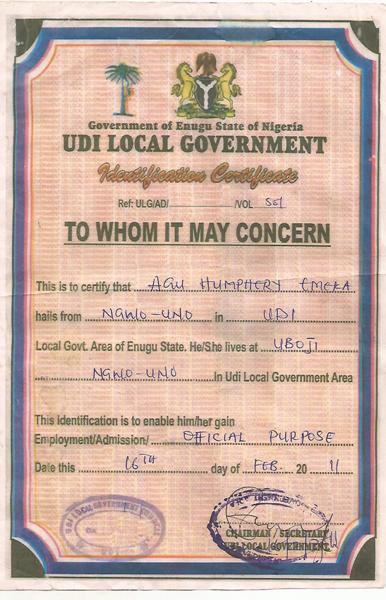 Government of Enugu State of Nigeria
UDI LOCAL GOVERNMENT
Identification Certificate
Ref: ULG/AD/ /VOL
TO WHOM IT MAY CONCERN
This is to certify that AGU HUMPHERY EMEKA
hails from NGWO-UNO in UDI
Local Govt. Area of Enugu State. He/She lives at UBOJI
NGWO-UNO In Udi Local Government Area
This Identification is to enable him/her gain
Employment/Admission/ OFFICIAL PURPOSE
Date this 16TH day of FEB. 20 11
UDI LOCAL GOVERNMENT
CHAIRMAN / SECRETARY
UDI LOCAL GOVERNMENT